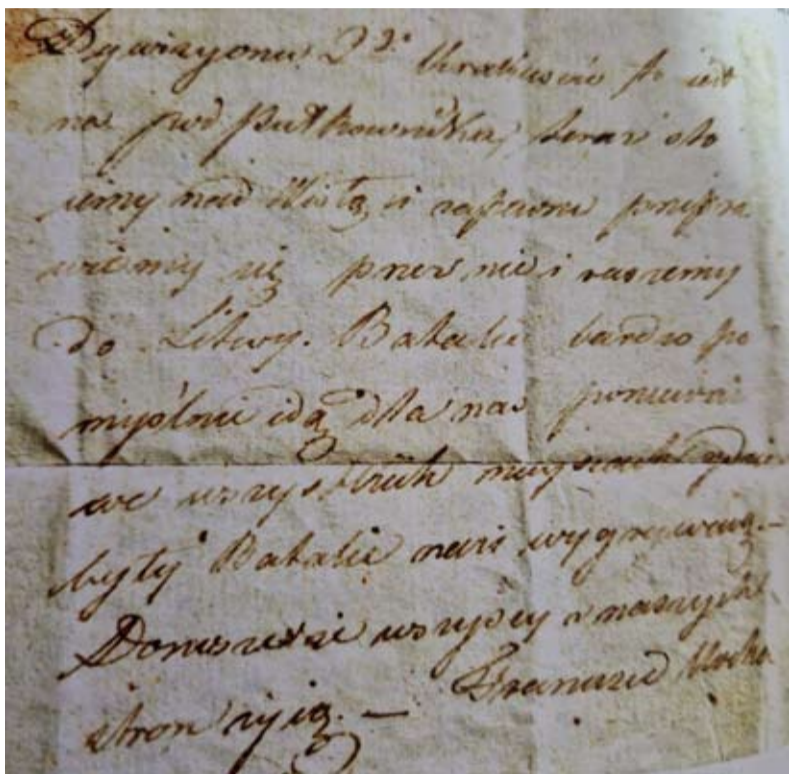 Dywizyonu 2go Krakusów to jest
na pod Pułkownika, teraz sto
iemy nad Wisłą i zapewne przepra
wiemy się przez nię i ruszemy
do Litwy. Batalie bardzo po
myślnie idą dla nas ponieważ
we wszystkich mieyscach gdzie
były Batalie nasi wygrawaią. –
Donoszę że wszyscy z naszych
stron żyią. – Franciszek